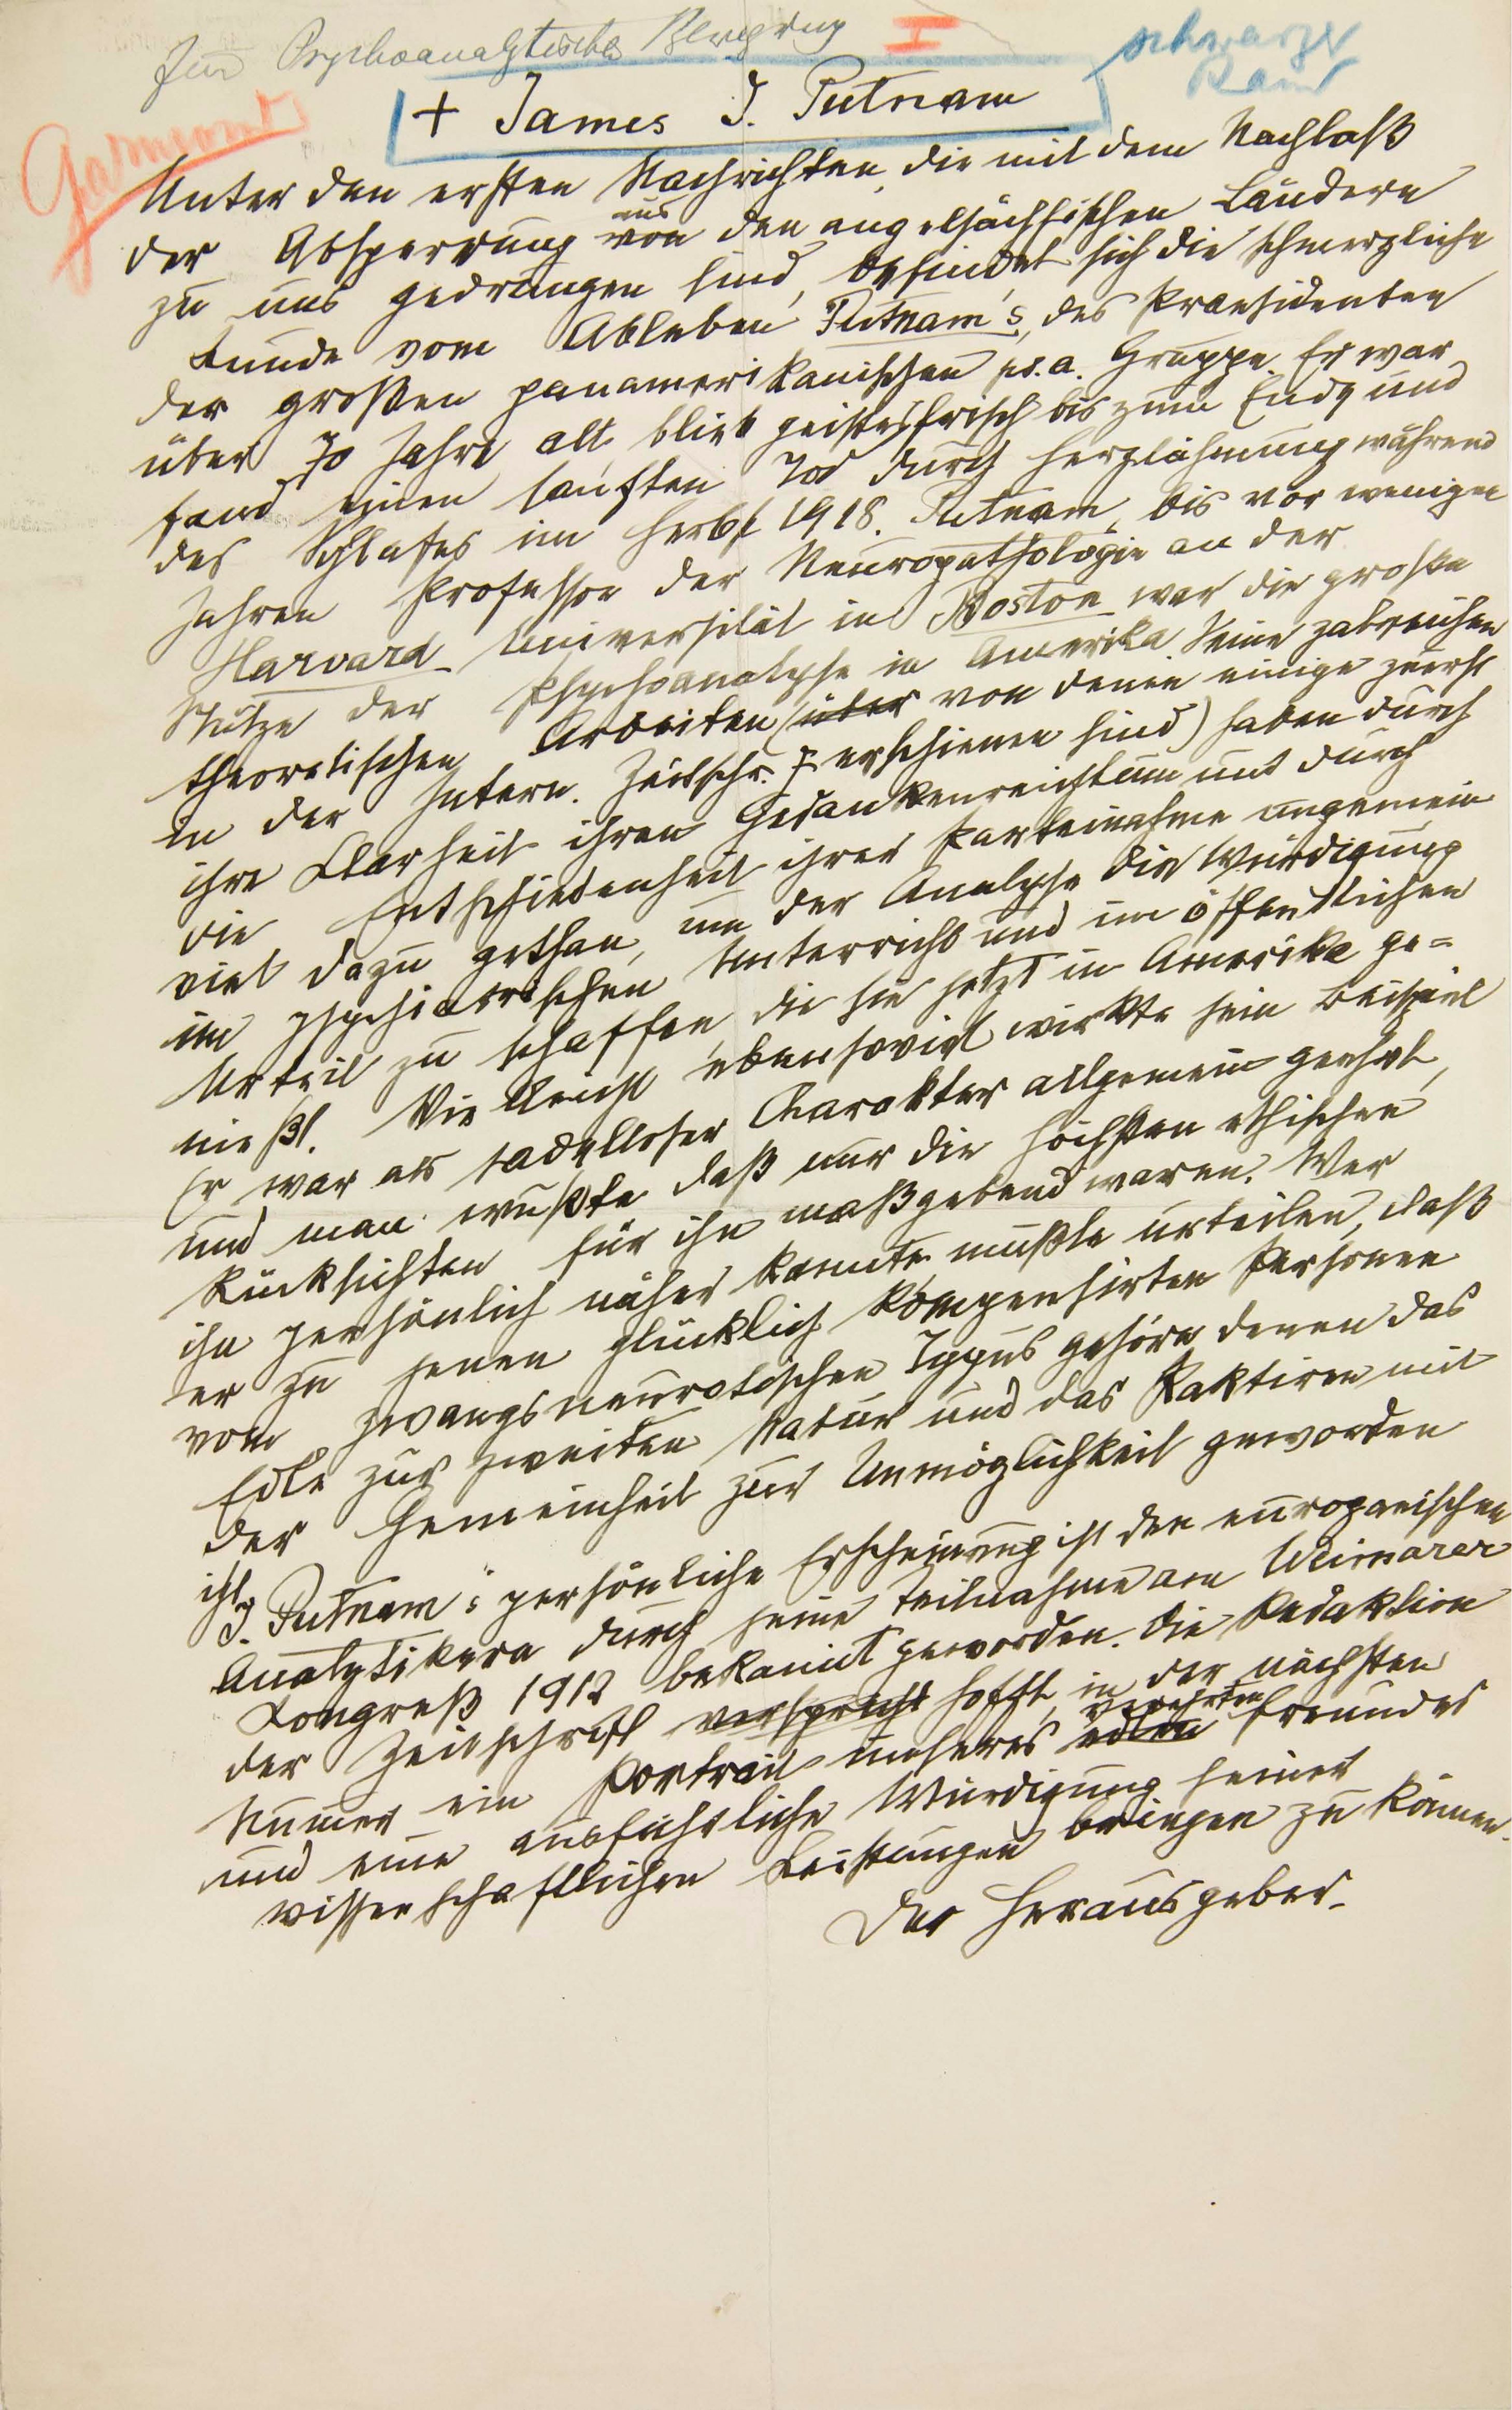 Zur Psychoanalytischen Bewegung
I
schwarzer
Rand
Garmond
+ James J. Putnam
Unter den ersten Nachrichten, die mit dem Nachlaß
der Absperrung aus von den angelsächsischen Ländern
zu uns gedrungen sind, befindet sich die schmerzliche
Kunde vom Ableben Putnam's, des Praesidenten
der großen panamerikanischen ps.a. Gruppe. Er war
über 70 Jahre alt, blieb geistesfrisch bis zum Ende und
fand einen sanften Tod durch Herzlähmung während
des Schlafes im Herbst 1918. Putnam, bis vor wenigen
Jahren Professor der Neuropathologie an der
Harvard Universität in Boston war die große
Stütze der Psychoanalyse in Amerika. Seine zalreichen
theoretischen Arbeiten (über von denen einige zuerst
in der Intern. Zeitschr. erschienen sind) haben durch
ihre Klarheit ihren Gedankenreichtum und durch
die Entschiedenheit ihrer Parteinahme ungemein
viel dazu gethan, um der Analyse die Würdigung
im psychiatrischen Unterricht und im öffentlichen
Urteil zu schaffen, die sie jetzt in Amerika ge=
nießt. Vielleicht ebensoviel wirkte sein Beispiel
Er war als tadelloser Charakter allgemein geehrt,
und man wußte daß nur die höchsten ethischen
Rücksichten für ihn maßgebend waren. Wer
ihn persönlich näher kannte mußte urteilen, daß
er zu jenen glücklich kompensirten Personen
vom zwangsneurotischen Typus gehöre denen das
Edle zur zweiten Natur und das Paktiren mit
der Gemeinheit zur Unmöglichkeit geworden
ist.
J. Putnam's persönliche Erscheinung ist den europaeischen
Analytikern durch seine Teilnahme am Weimarer
Kongreß 1912 bekannt geworden. Die Redaktion
der Zeitschrift verspricht hofft, in der nächsten
Numer ein Portrait unseres edlen verehrten Freundes
und eine ausführliche Würdigung seiner
wissenschaftlichen Leistungen bringen zu können.
Der Herausgeber.